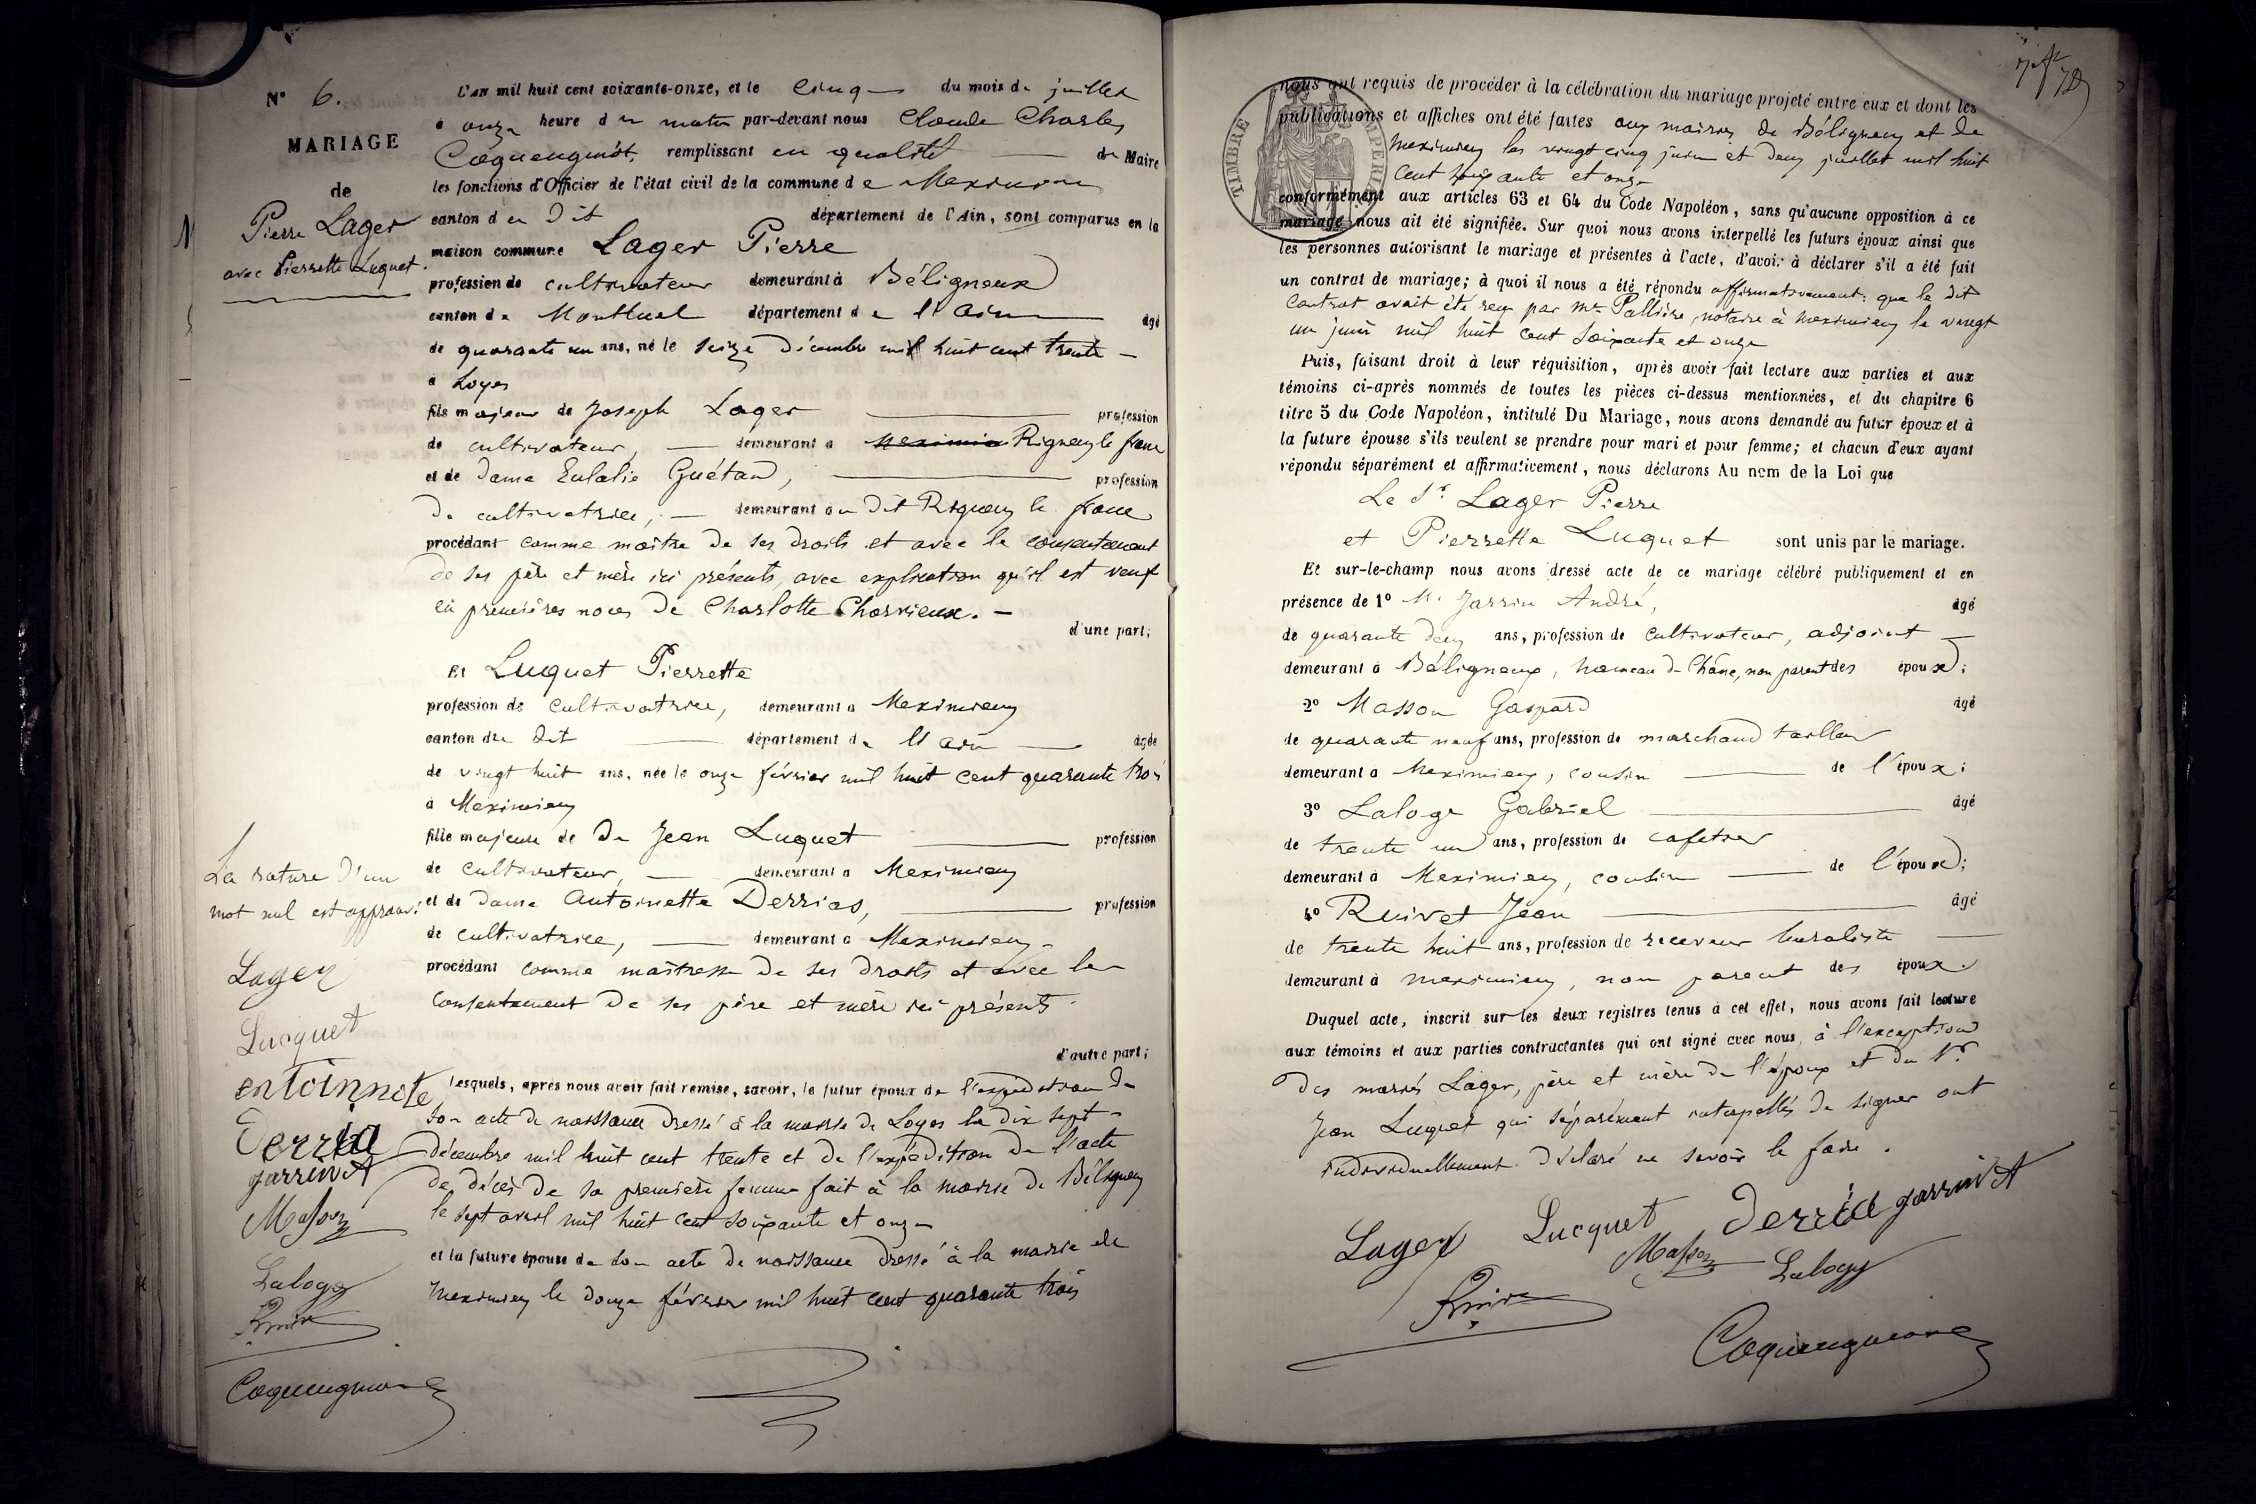 N° 6.
MARIAGE
de
Pierre Lager
avec Pierrette Luquet.
L'AN mil huit cent soixante-onze, et le cinq du mois de juillet
à onze heure d u matin par-devant nous Claude Charles
Coquengniot, remplissant en qualité de Maire
les fonctions d'Officier de l'état civil de la commune d e Meximieux
canton d u dit département de l'Ain, sont comparus en la
maison commune Lager Pierre
profession de cultivateur demeurant à Béligneux
canton de Montluel département d e l'Ain âgé
de quarante un ans, né le seize décembre mil huit cent trente
à Loyes
fils majeur de Joseph Lager profession
de cultivateur, demeurant à Meximie Rigneux le franc
et de dame Eulalie Guétan, profession
de cultivatrice, demeurant au dit Rigneux le franc
procédant comme maître de ses droits et avec le consentement
de ses père et mère ici présents, avec explication qu'il est veuf
en premières noces de Charlotte Charvieux.
d'une part;
Et Luquet Pierrette
profession de cultivatrice, demeurant à Meximieux
canton du dit département de l'Ain âgée
de vingt huit ans, née le onze février mil huit cent quarante trois
à Meximieux
fille majeure de De Jean Luquet profession
de cultivateur, demeurant à Meximieux
et de dame Antoinette Derrias, profession
de cultivatrice, demeurant à Meximieux
procédant comme maîtresse de ses droits et avec le
consentement de ses père et mère ici présents.
d'autre part;
Lesquels, après nous avoir fait remise, savoir, le futur époux de l'expédition de
son acte de naissance dressé à la mairie de Loyes le dix sept
décembre mil huit cent trente et de l'expédition de l'acte
de décès de sa première femme fait à la mairie de Béligneux
le sept avril mil huit cent soixante et onze
et la future épouse de son acte de naissance dressé à la mairie de
Meximieux le douze février mil huit cent quarante trois
La rature d'un
mot nul est approuvé
Lager
Lucquet
entoinnete
Derria
jarrin A
Masson
Laloge
Ruivet
Coquengniot
nous ont requis de procéder à la célébration du mariage projeté entre eux et dont les
publications et affiches ont été faites aux mairies de Béligneux et de
Meximieux les vingt cinq juin et deux juillet mil huit
cent soixante et onze
conformément aux articles 63 et 64 du Code Napoléon, sans qu'aucune opposition à ce
mariage nous ait été signifiée. Sur quoi nous avons interpellé les futurs époux ainsi que
les personnes autorisant le mariage et présentes à l'acte, d'avoir à déclarer s'il a été fait
un contrat de mariage; à quoi il nous a été répondu affirmativement; que le dit
contrat avait été reçu par Me Pallière, notaire à Meximieux le vingt
un juin mil huit cent soixante et onze
Puis, faisant droit à leur réquisition, après avoir fait lecture aux parties et aux
témoins ci-après nommés de toutes les pièces ci-dessus mentionnées, et du chapitre 6
titre 5 du Code Napoléon, intitulé Du Mariage, nous avons demandé au futur époux et à
la future épouse s'ils veulent se prendre pour mari et pour femme; et chacun d'eux ayant
répondu séparément et affirmativement, nous déclarons Au nom de la Loi que
Le Sr. Lager Pierre
et Pierrette Luquet sont unis par le mariage.
Et sur-le-champ nous avons dressé acte de ce mariage célébré publiquement et en
présence de 1° M. Jarrin André, âgé
de quarante deux ans, profession de cultivateur, adjoint
demeurant à Béligneux, hameau de Chane, non parent des époux;
2° Masson Gaspard âgé
de quarante neuf ans, profession de marchand tailleur
demeurant à Meximieux, cousin de l'époux;
3° Laloge Gabriel âgé
de trente un ans, profession de cafetier
demeurant à Meximieux, cousin de l'époux;
4° Ruivet Jean âgé
de trente huit ans, profession de receveur buraliste
demeurant à Meximieux, non parent des époux.
Duquel acte, inscrit sur les deux registres tenus à cet effet, nous avons fait lecture
aux témoins et aux parties contractantes qui ont signé avec nous, à l'exception
des mariés Lager, père et mère de l'époux et du Sr.
Jean Luquet qui séparément interpellés de signer ont
individuellement déclaré ne savoir le faire.
Lager Lucquet Derria jarrin A
Masson Laloge
Ruivet
Coquengniot
TIMBRE IMPERIAL